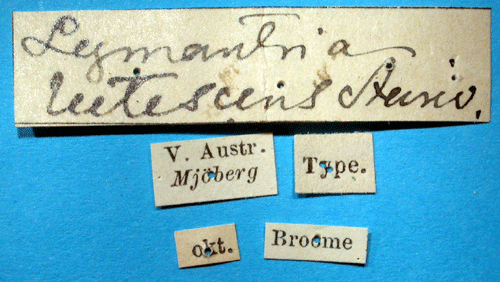 Lymantria
lutescens Auriv.
V. Austr.
Mjöberg
Type.
okt.
Broome